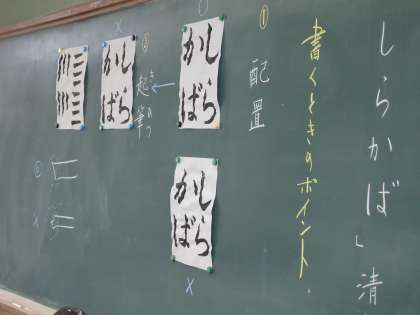 しらかば」清
書くときのポイント.
①
配置
○
しら
かば
しら
かば
×
②
きひつ
起筆
×
しら
かば
×